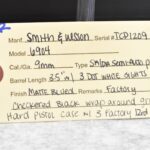 Manf. Smith & Wesson Serial # TCP1209
Model 6904
Cal./Ga. 9mm Type SA/DA Semi-Auto P
Barrel Length 3.5" w/ 3 Dot White Sights
Finish Matte Blued Remarks Factory
Checkered Black Wrap around gr
Hard Pistol Case w/ 3 Factory 12rd